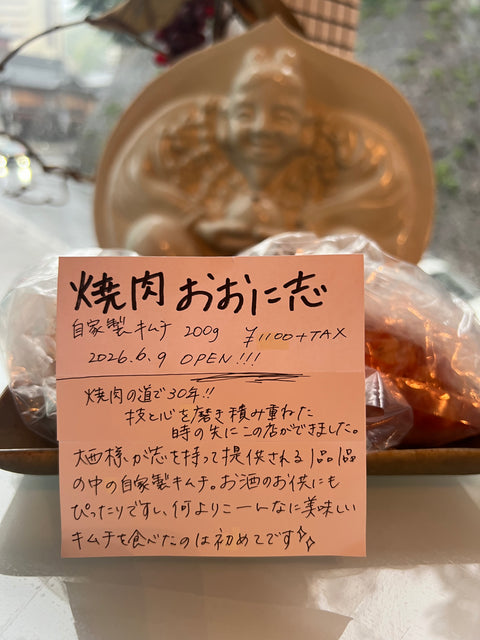 焼肉 おおに志
自家製キムチ 200g ¥1100+TAX
2026.6.9 OPEN!!!
焼肉の道で30年!!
技と心を磨き積み重ねた
時の先にこの店ができました。
大西様が志を持って提供される1品1品
の中の自家製キムチ。お酒のお供にも
ぴったりですし、何よりこーんなに美味しい
キムチを食べたのは初めてです